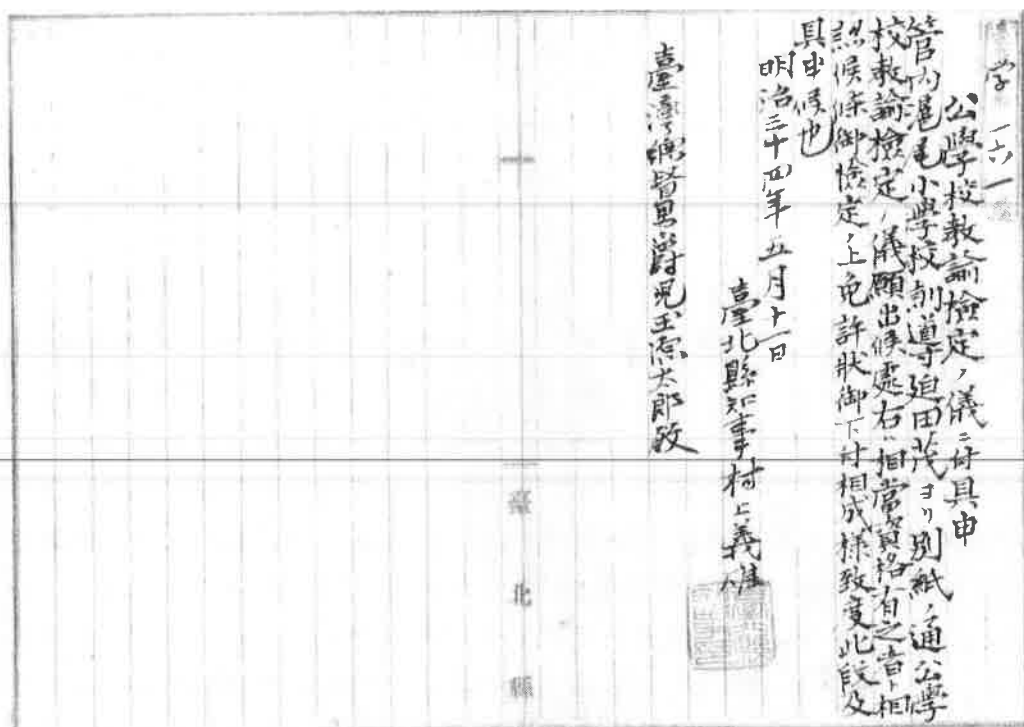 学一六一
公學校教諭檢定ノ儀ニ付具申
管內滬尾小學校訓導迫田茂ヨリ別紙ノ通公學
校教諭檢定ノ儀願出候處右ハ相當資格有之者ト相
認候條御檢定ノ上免許狀御下付相成樣致度此段及
具申候也
明治三十四年五月十一日
臺北縣知事村上義雄
臺灣總督男爵兒玉源太郎殿
臺北縣